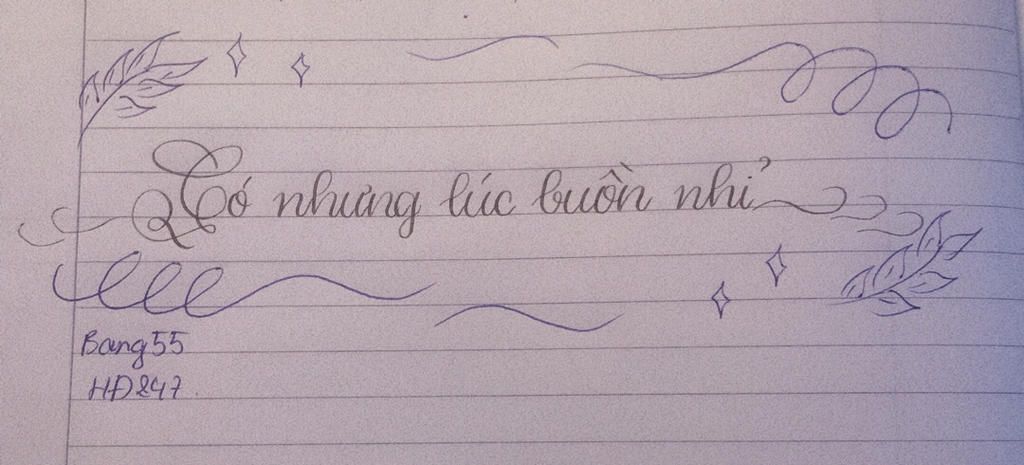 Có nhưng lúc buồn nhỉ
Bang55
HĐ247